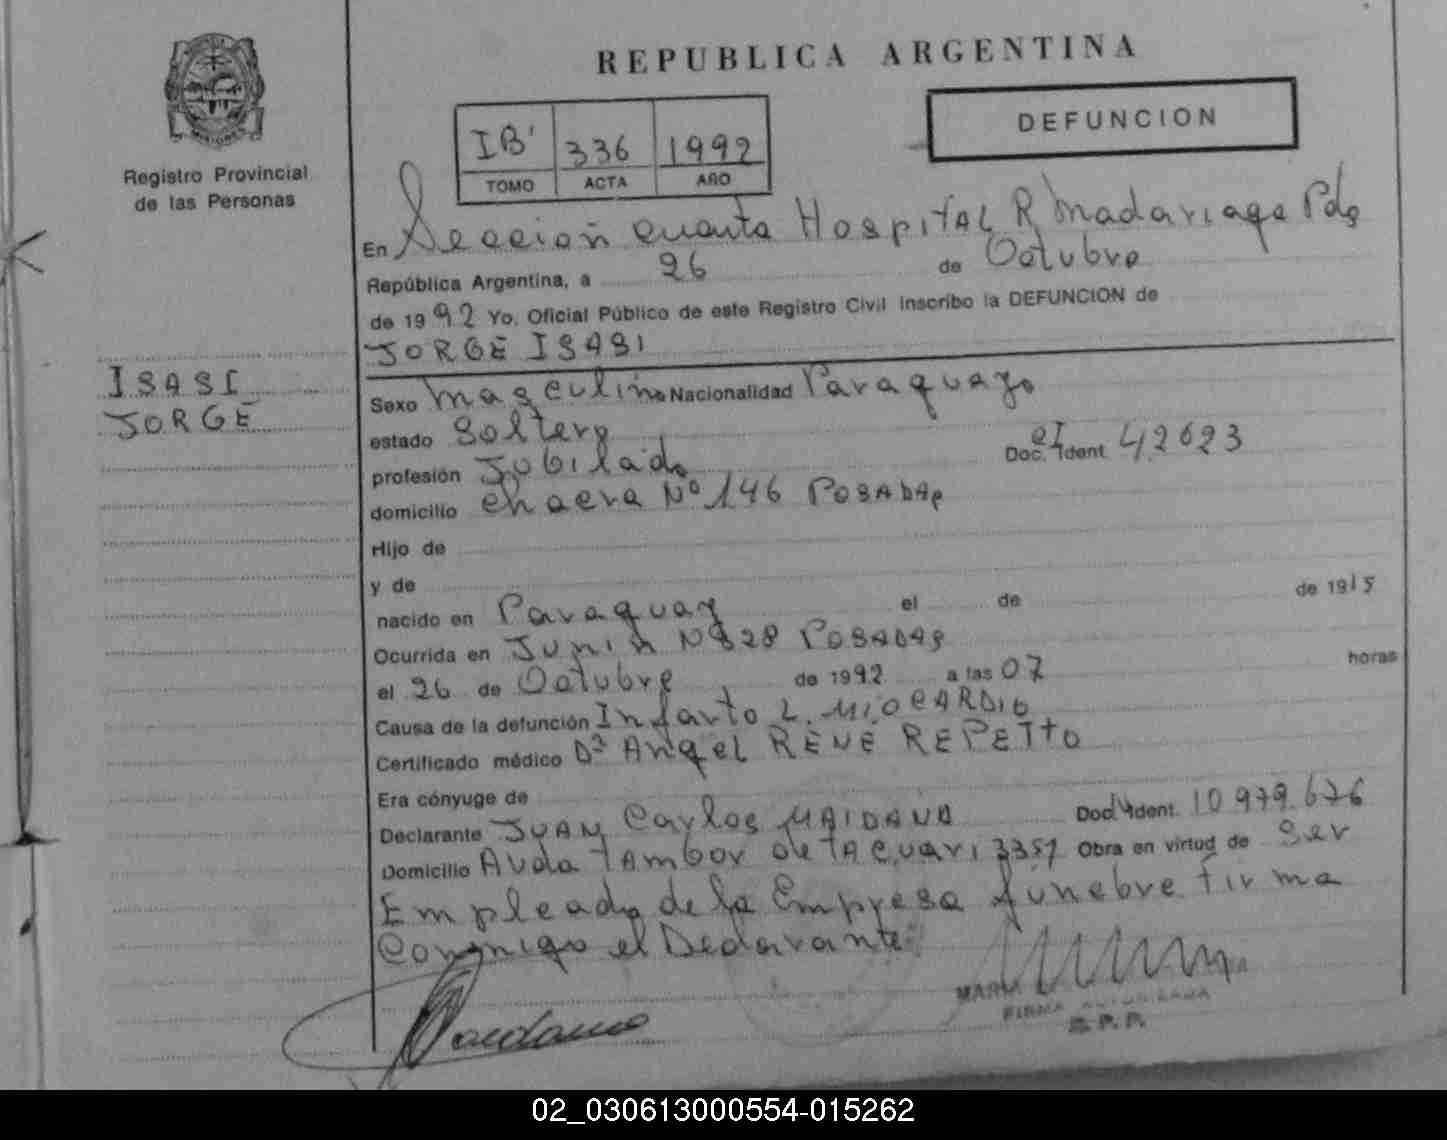 REPUBLICA ARGENTINA
DEFUNCION
IB' 336 1992
TOMO ACTA AÑO
Registro Provincial
de las Personas
En Sección cuarta Hospital R Madariaga Pdas
República Argentina, a 26 de Octubre
de 1992 Yo, Oficial Público de este Registro Civil inscribo la DEFUNCION de
JORGE ISASI
ISASI
JORGE
Sexo Masculino Nacionalidad Paraguayo
estado Soltero
profesión Jubilado Doc. Ident. CI 42623
domicilio Chacra Nº 146 POSADAS
Hijo de
y de
nacido en Paraguay el de de 1915
Ocurrida en Junin Nº 828 POSADAS
el 26 de Octubre de 1992 a las 07 horas
Causa de la defunción Infarto MIOCARDIO
Certificado médico Dr Angel RENE REPETTO
Era cónyuge de
Declarante JUAN Carlos MAIDANA Doc. Ident. 10.979.676
Domicilio Avda TAmbor de TAcuari 3357 Obra en virtud de Ser
Empleado de la Empresa fúnebre firma
Conmigo el Declarante
FIRMA AUTORIZADA
R.P.P.
02_030613000554-015262